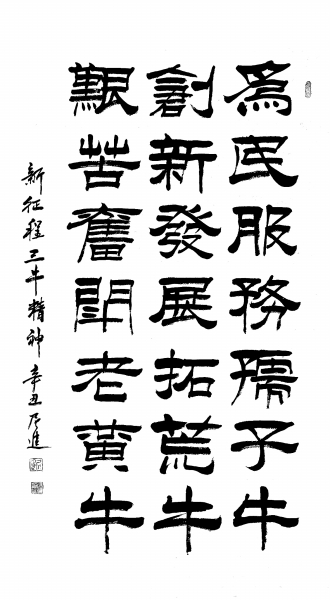 為民服務孺子牛
創新發展拓荒牛
艱苦奮鬥老黃牛
新征程三牛精神辛丑乃進